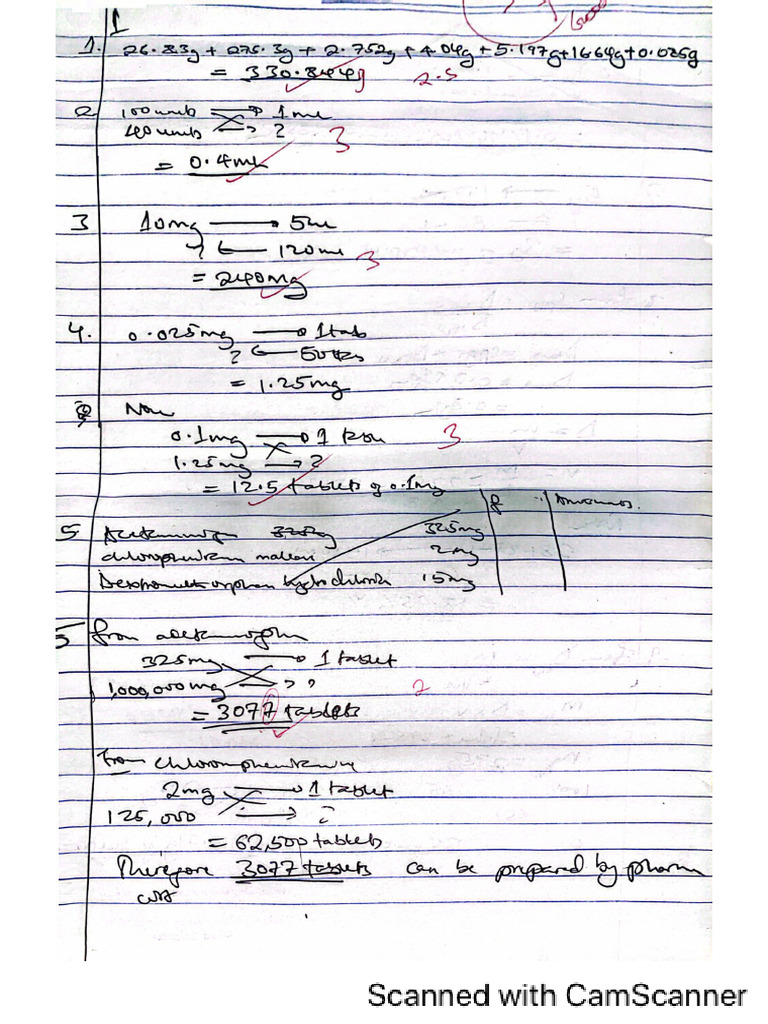 1
1. 26.83g + 275.3g + 2.752g + 4.04g + 5.197g + 16.64g + 0.085g
= 330.844g 2.5
2 100 units → 1ml
40 units → ?
3
= 0.4ml
3 10mg → 5ml
? ← 120ml 3
= 240mg
4. 0.025mg → 1tab
? ← 50
= 1.25mg
Now
0.1mg → 1 3
1.25mg → ?
= 12.5 tablets of 0.1mg
5 325mg
2mg
hydrochloride 15mg
5 from
325mg → 1 tablet
1,000,000mg → ? 2
= 3077 tablets
From
2mg → 1 tablet
125,000 → ?
= 62,500 tablets
Therefore 3077 tablets can be prepared by pharma
cist
Scanned with CamScanner